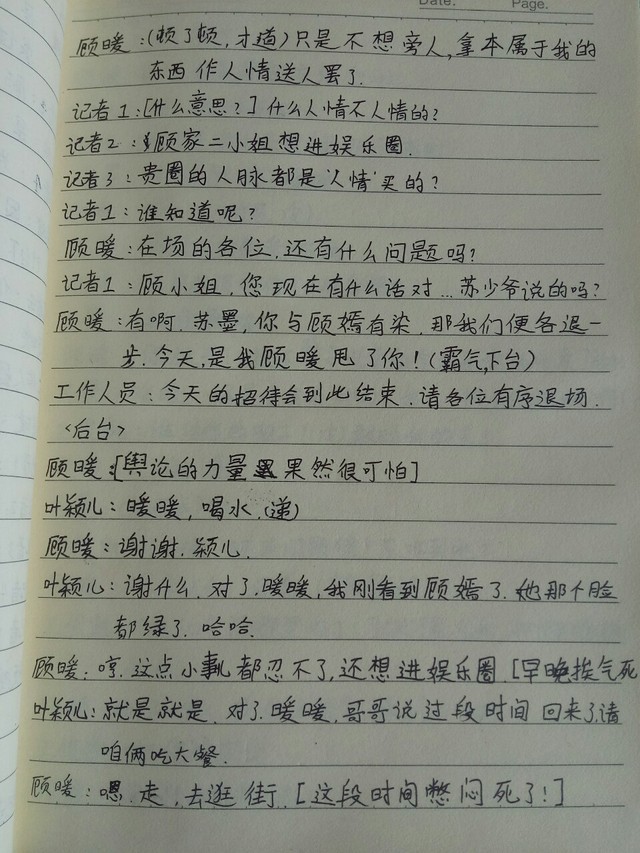 Date.
Page.
顾暖：(顿了顿，才道)只是不想旁人，拿本属于我的
东西作人情送人罢了.
记者1：[什么意思？]什么人情不人情的？
记者2：顾家二小姐想进娱乐圈.
记者3：贵圈的人脉都是‘人情’买的？
记者1：谁知道呢？
顾暖：在场的各位，还有什么问题吗？
记者1：顾小姐，您现在有什么话对...苏少爷说的吗？
顾暖：有啊.苏墨，你与顾嫣有染，那我们便各退一
步.今天，是我顾暖甩了你！(霸气下台)
工作人员：今天的招待会到此结束.请各位有序退场.
<后台>
顾暖：[舆论的力量果然很可怕]
叶颖儿：暖暖，喝水.(递)
顾暖：谢谢.颖儿.
叶颖儿：谢什么.对了.暖暖，我刚看到顾嫣了.她那个脸
都绿了.哈哈.
顾暖：哼.这点小事儿都忍不了，还想进娱乐圈.[早晚挨气死
叶颖儿：就是就是.对了.暖暖，哥哥说过段时间回来了.请
咱俩吃大餐.
顾暖：嗯.走，去逛街.[这段时间憋闷死了！]